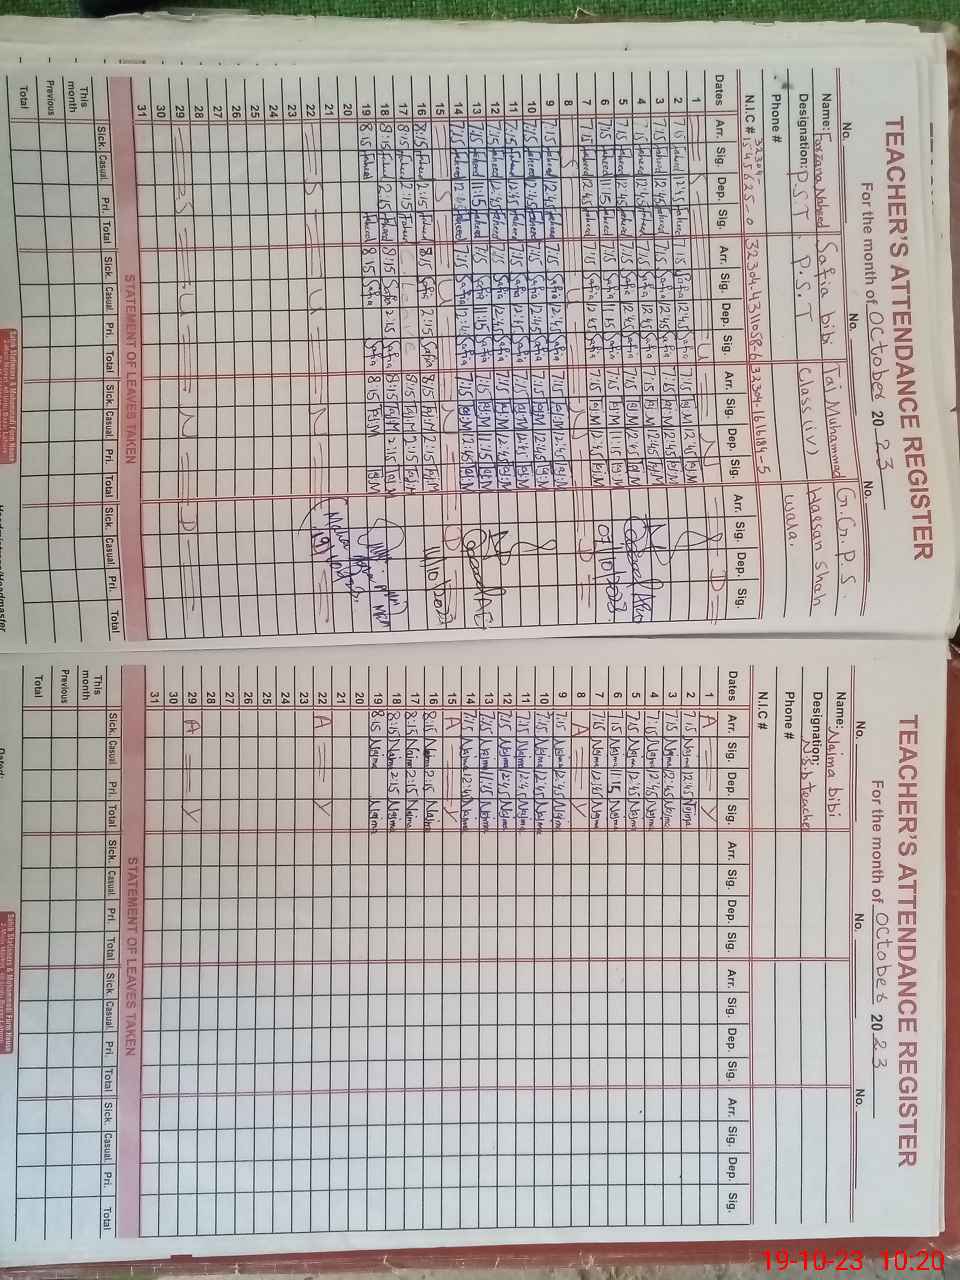 TEACHER'S ATTENDANCE REGISTER
For the month of October 2023
No. No. No.
Name: Farzana Naheed Safia bibi Taj Muhammad G.G.P.S.
Designation: P.S.T P.S.T Class (iv) Hassan Shah
Phone # wala.
N.I.C # 32304-1545625-0 32304-4311058-6 32304-1616184-5
Dates Arr. Sig. Dep. Sig. Arr. Sig. Dep. Sig. Arr. Sig. Dep. Sig. Arr. Sig. Dep. Sig.
1 S U N D
2 7:15 Naheed 12:45 Naheed 7:15 Safia 12:45 Safia 7:15 Taj.M 12:45 Taj.M
3 7:15 Naheed 12:45 Naheed 7:15 Safia 12:45 Safia 7:15 Taj.M 12:45 Taj.M
4 7:15 Naheed 12:45 Naheed 7:15 Safia 12:45 Safia 7:15 Taj.M 12:45 Taj.M
5 7:15 Naheed 12:45 Naheed 7:15 Safia 12:45 Safia 7:15 Taj.M 12:45 Taj.M
6 7:15 Naheed 11:15 Naheed 7:15 Safia 11:15 Safia 7:15 Taj.M 11:15 Taj.M
7 7:15 Naheed 12:45 Naheed 7:15 Safia 12:45 Safia 7:15 Taj.M 12:45 Taj.M 07/10/2023
8 S U N D
9 7:15 Naheed 12:45 Naheed 7:15 Safia 12:45 Safia 7:15 Taj.M 12:45 Taj.M
10 7:15 Naheed 12:45 Naheed 7:15 Safia 12:45 Safia 7:15 Taj.M 12:45 Taj.M
11 7:15 Naheed 12:45 Naheed 7:15 Safia 12:45 Safia 7:15 Taj.M 12:45 Taj.M
12 7:15 Naheed 12:45 Naheed 7:15 Safia 12:45 Safia 7:15 Taj.M 12:45 Taj.M
13 7:15 Naheed 11:15 Naheed 7:15 Safia 11:15 Safia 7:15 Taj.M 11:15 Taj.M
14 7:15 Naheed 12:45 Naheed 7:15 Safia 12:45 Safia 7:15 Taj.M 12:45 Taj.M
15 S U N D
16 8:15 Naheed 2:15 Naheed 8:15 Safia 2:15 Safia 8:15 Taj.M 2:15 Taj.M 11/10/2023
17 8:15 Naheed 2:15 Naheed C. Leave 8:15 Taj.M 2:15 Taj.M
18 8:15 Naheed 2:15 Naheed 8:15 Safia 2:15 Safia 8:15 Taj.M 2:15 Taj.M
19 8:15 Naheed Naheed 8:15 Safia Safia 8:15 Taj.M Taj.M
20
21
22 S U N
23
24
25
26
27
28
29 S U N D
30
31
STATEMENT OF LEAVES TAKEN
Sick. Casual. Pri. Total Sick. Casual Pri. Total Sick. Casual Pri. Total Sick. Casual Pri. Total
This month
Previous
Total
Headmistress/Headmaster
TEACHER'S ATTENDANCE REGISTER
For the month of October 2023
No. No. No.
Name: Najma bibi
Designation: N.S.b teacher
Phone #
N.I.C #
Dates Arr. Sig. Dep. Sig. Arr. Sig. Dep. Sig. Arr. Sig. Dep. Sig. Arr. Sig. Dep. Sig.
1 A Y
2 7:15 Najma 12:45 Najma
3 7:15 Najma 12:45 Najma
4 7:15 Najma 12:45 Najma
5 7:15 Najma 12:45 Najma
6 7:15 Najma 11:15 Najma
7 7:15 Najma 12:45 Najma
8 A Y
9 7:15 Najma 12:45 Najma
10 7:15 Najma 12:45 Najma
11 7:15 Najma 12:45 Najma
12 7:15 Najma 12:45 Najma
13 7:15 Najma 11:15 Najma
14 7:15 Najma 12:45 Najma
15 A Y
16 8:15 Najma 2:15 Najma
17 8:15 Najma 2:15 Najma
18 8:15 Najma 2:15 Najma
19 8:15 Najma Najma
20
21
22 A Y
23
24
25
26
27
28
29 A Y
30
31
STATEMENT OF LEAVES TAKEN
Sick. Casual Pri. Total Sick. Casual Pri. Total Sick. Casual Pri. Total Sick. Casual Pri. Total
This month
Previous
Total
Dated:
19-10-23 10:20